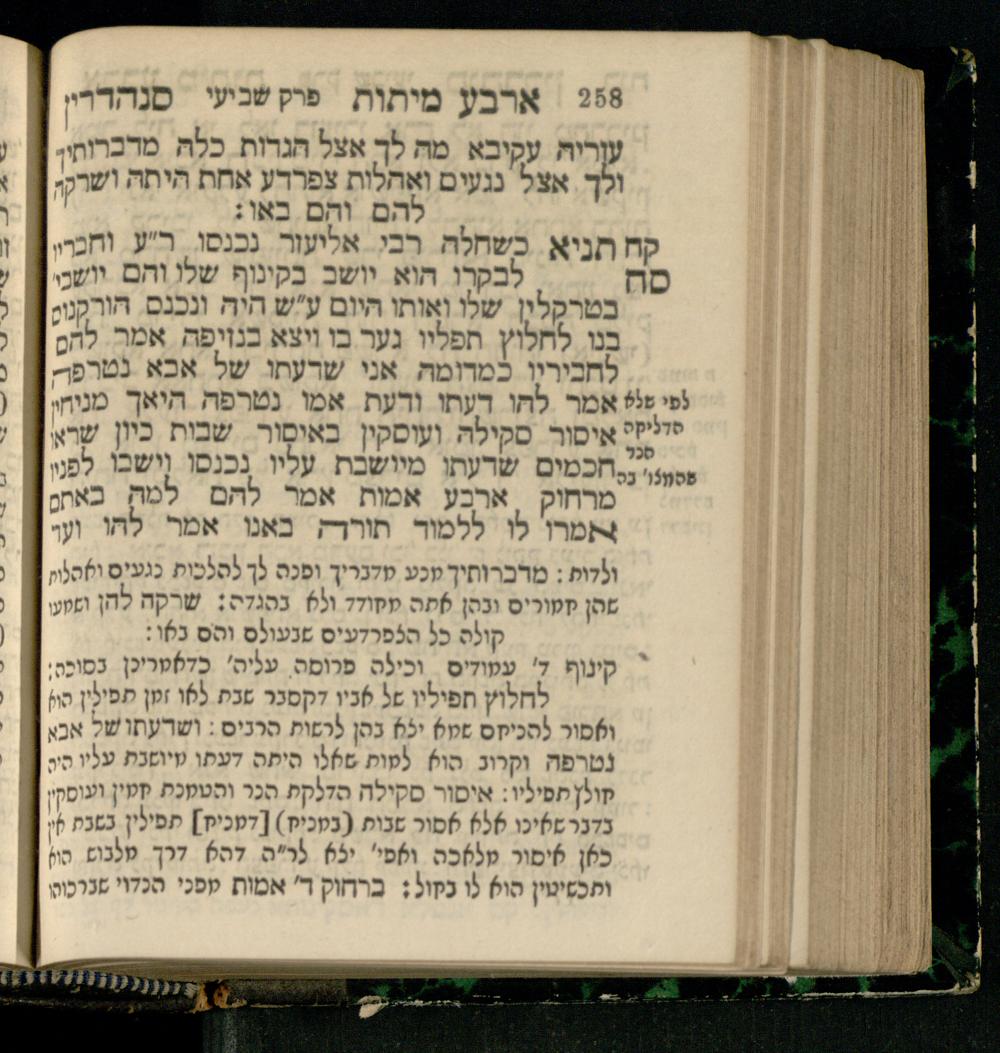 258 ארבע מיתות פרק שביעי סנהדרין
עזריה עקיבא מה לך אצל הגדות כלה מדברותיך
ולך אצל נגעים ואהלות צפרדע אחת היתה ושרקה
להם והם באו :
קח תניא כשחלה רבי אליעזר נכנסו ר״ע וחבריו
סח לבקרו הוא יושב בקינוף שלו והם יושבי׳
בטרקלין שלו ואותו היום ע״ש היה ונכנס הורקנוס
בנו לחלוץ תפליו גער בו ויצא בנזיפה אמר להם
לחביריו כמדומה אני שדעתו של אבא נטרפה
אמר להו דעתו ודעת אמו נטרפה היאך מניחין
איסור סקילה ועוסקין באיסור שבות כיון שראו
חכמים שדעתו מיושבת עליו נכנסו וישבו לפניו
מרחוק ארבע אמות אמר להם למה באתם
אמרו לו ללמוד תורה באנו אמר להו ועד
לפי שלא
הדליקה
הנר
שהמנו׳ בה
ולדות : מדברותיך מנע מדבריך ופנה לך להלכות נגעים ואהלות
שהן חמורים ובהן אתה מחודד ולא בהגדה : שרקה להן ושמעו
קולה כל הצפרדעים שבעולם והם באו :
קינוף ד׳ עמודים וכילה פרוסה עליה׳ כדאמרינן בסוכה :
לחלוץ תפיליו של אביו דקסבר שבת לאו זמן תפילין הוא
ואסור להניחם שמא יצא בהן לרשות הרבים : ושדעתו של אבא
נטרפה וקרוב הוא למות שאלו היתה דעתו מיושבת עליו היה
חולץ תפיליו : איסור סקילה הדלקת הנר והטמנת חמין ועוסקין
בדבר שאינו אלא אסור שבות (במניח) [דמניח] תפילין בשבת אין
כאן איסור מלאכה ואפי׳ יצא לר״ה דהא דרך מלבוש הוא
ותכשיטין הוא לו בחול : ברחוק ד׳ אמות מפני הנדוי שברכוהו